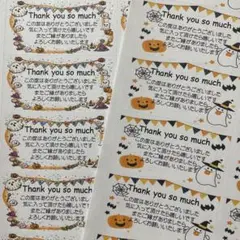 Thank you so much
この度はありがとうございました
気に入って頂けたら嬉しいです
またご縁がありましたら
よろしくお願いします。
Thank you so much
この度はありがとうございました
気に入って頂けたら嬉しいです
またご縁がありましたら
よろしくお願いします。
Thank you so much
この度はありがとうございました
気に入って頂けたら嬉しいです
またご縁がありましたら
よろしくお願いします。
Thank you so much
この度はありがとうございました
気に入って頂けたら嬉しいです
またご縁がありましたら
よろしくお願いします。
Thank you so much
この度はありがとうございました
気に入って頂けたら嬉しいです
またご縁がありましたら
よろしくお願いします。
Thank you so much
この度はありがとうございました
気に入って頂けたら嬉しいです
またご縁がありましたら
よろしくお願いします。
Thank you so much
この度はありがとうございました
気に入って頂けたら嬉しいです
またご縁がありましたら
よろしくお願いします。